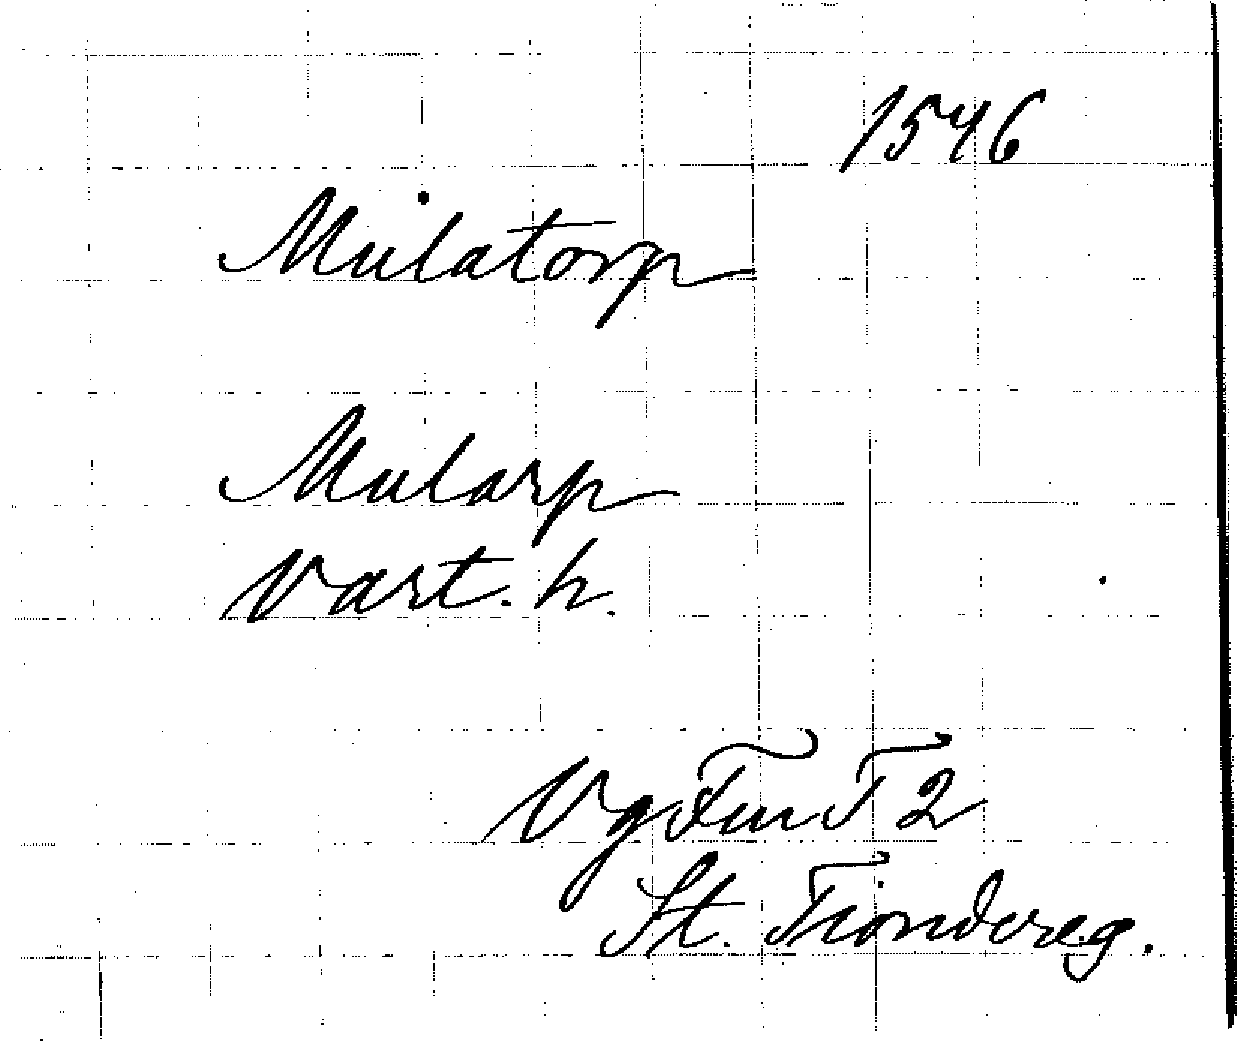 1546
Mulatorp
Mularp
Vart. h.
Vg Fur T 2
St. Tiondereg.